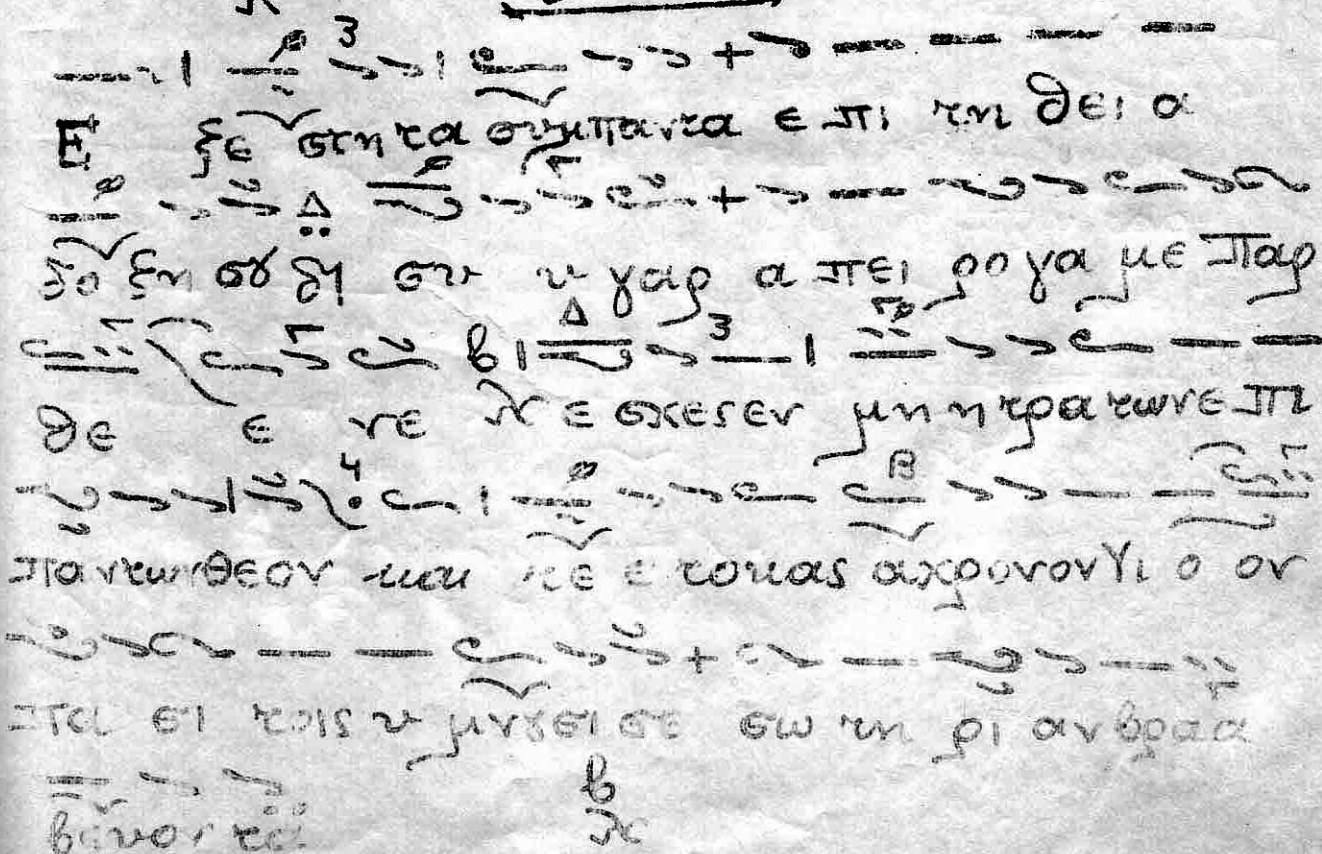 Ε ξε στη τα συμπαντα ε πι τη θει α
δο ξη σȣ δη συ υ γαρ α πει ρο γα με Παρ
θε ε νε λ ε σχεςεν μη η τρα τωνε πι
παντωνθεον και τε ε τοκας αχρονονΥι ο ον
πα σι τοις υ μνȣσι σε σω τη ρι αν βραα